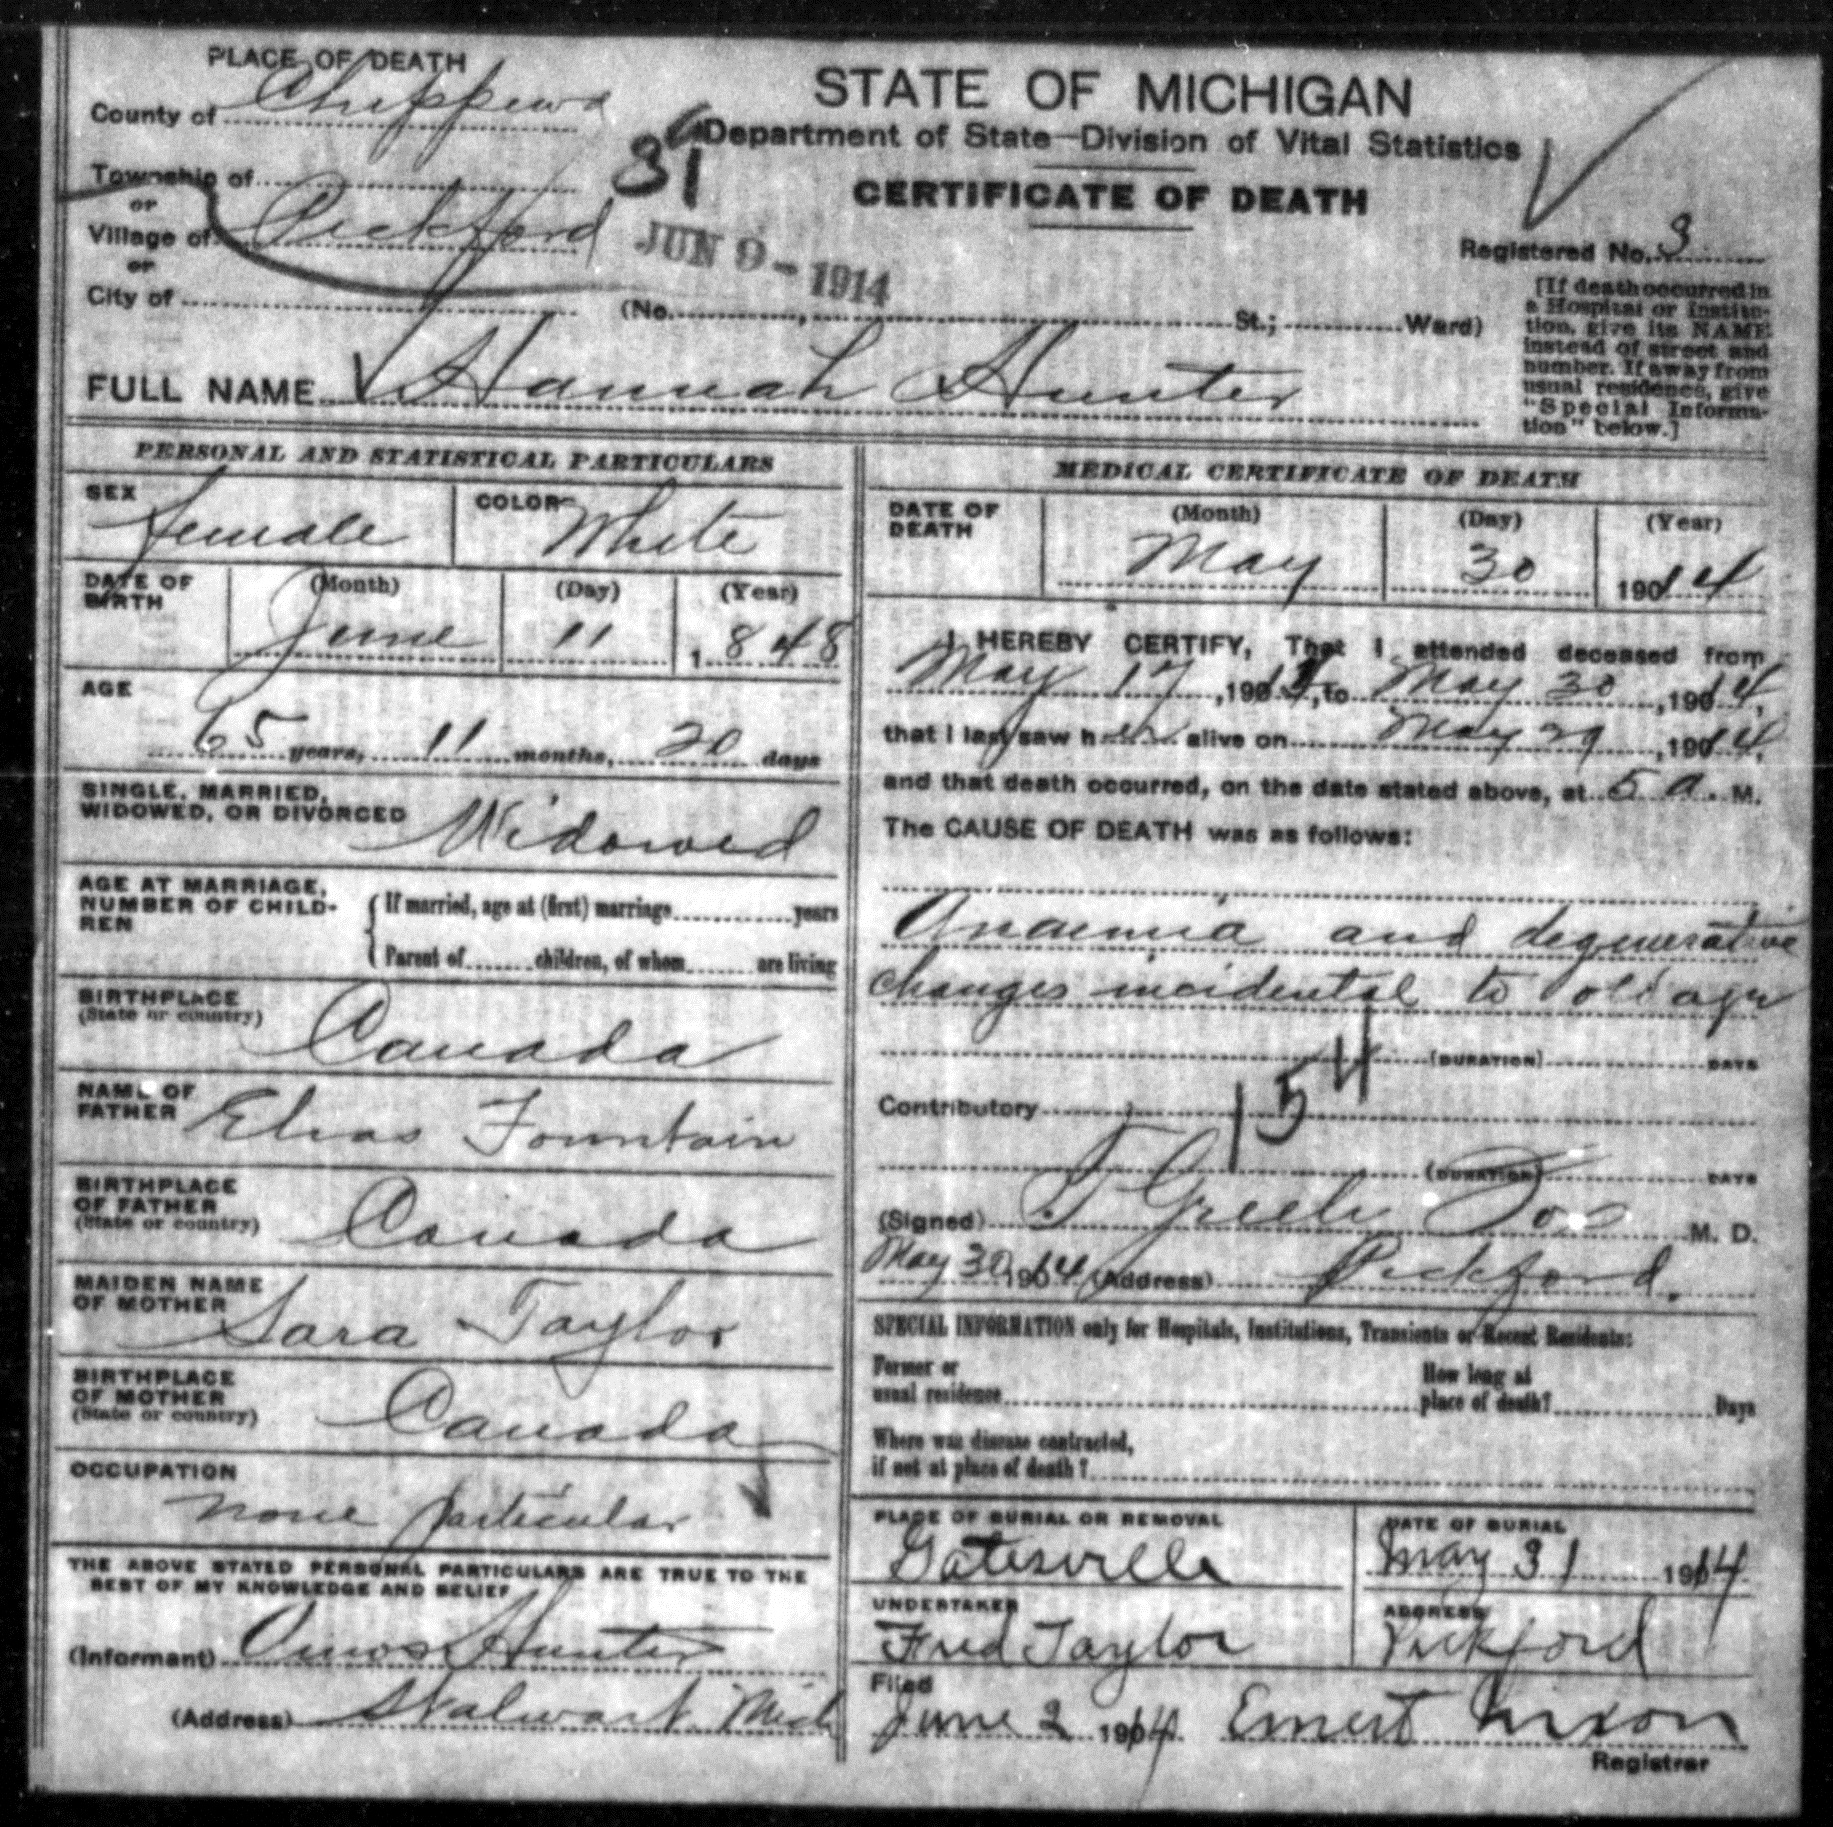 PLACE OF DEATH
County of Chippewa
Township of
or
Village of Pickford
or
City of
STATE OF MICHIGAN
Department of State—Division of Vital Statistics
CERTIFICATE OF DEATH
JUN 9 - 1914
Registered No. 3
(No. , St.; Ward)
[If death occurred in
a Hospital or Institu-
tion, give its NAME
instead of street and
number. If away from
usual residence, give
"Special Informa-
tion" below.]
FULL NAME Hannah Hunter
PERSONAL AND STATISTICAL PARTICULARS
SEX female COLOR White
DATE OF BIRTH (Month) June (Day) 11 (Year) 1848
AGE
65 years, 11 months, 20 days
SINGLE, MARRIED,
WIDOWED, OR DIVORCED Widowed
AGE AT MARRIAGE,
NUMBER OF CHILD-
REN
If married, age at (first) marriage years
Parent of children, of whom are living
BIRTHPLACE
(State or country) Canada
NAME OF
FATHER Elias Fountain
BIRTHPLACE
OF FATHER
(State or country) Canada
MAIDEN NAME
OF MOTHER Sara Taylor
BIRTHPLACE
OF MOTHER
(State or country) Canada
OCCUPATION
none particular
THE ABOVE STATED PERSONAL PARTICULARS ARE TRUE TO THE
BEST OF MY KNOWLEDGE AND BELIEF
(Informant) Hunter
(Address) Stalwart Mich
MEDICAL CERTIFICATE OF DEATH
DATE OF DEATH (Month) May (Day) 30 (Year) 1914
I HEREBY CERTIFY, That I attended deceased from
May 17, 1914, to May 30, 1914,
that I last saw her alive on May 29, 1914,
and that death occurred, on the date stated above, at 5 a. M.
The CAUSE OF DEATH was as follows:
Anaemia and degenerative
changes incidental to old age
(DURATION) DAYS
154
Contributory
(DURATION) DAYS
(Signed) M. D.
May 30 1914 (Address) Pickford.
SPECIAL INFORMATION only for Hospitals, Institutions, Transients or Recent Residents:
Former or
usual residence
How long at
place of death? Days
Where was disease contracted,
if not at place of death?
PLACE OF BURIAL OR REMOVAL
Gatesville
DATE OF BURIAL
May 31 1914
UNDERTAKER
Fred Taylor
ADDRESS
Pickford
Filed
June 2 1914 Ernest Nixon
Registrar